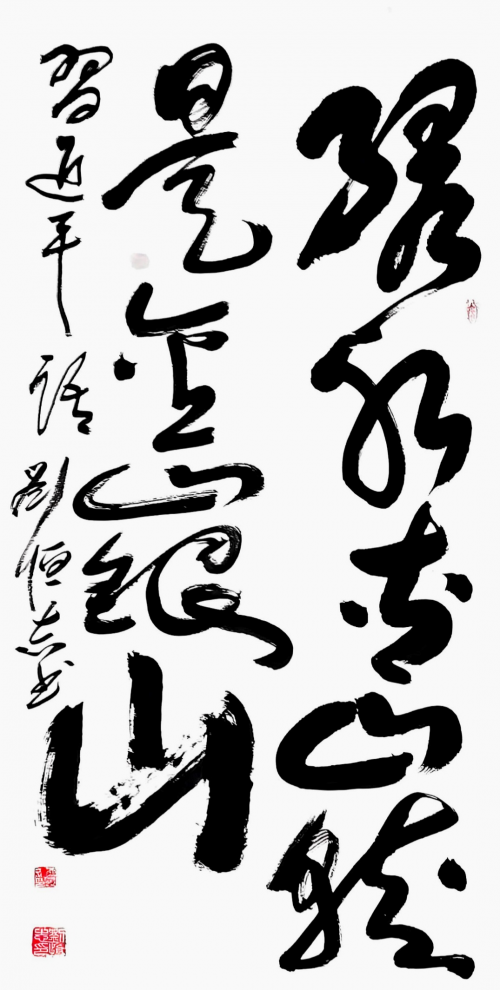 绿水青山就
是金山银山
習近平话劉恒志书